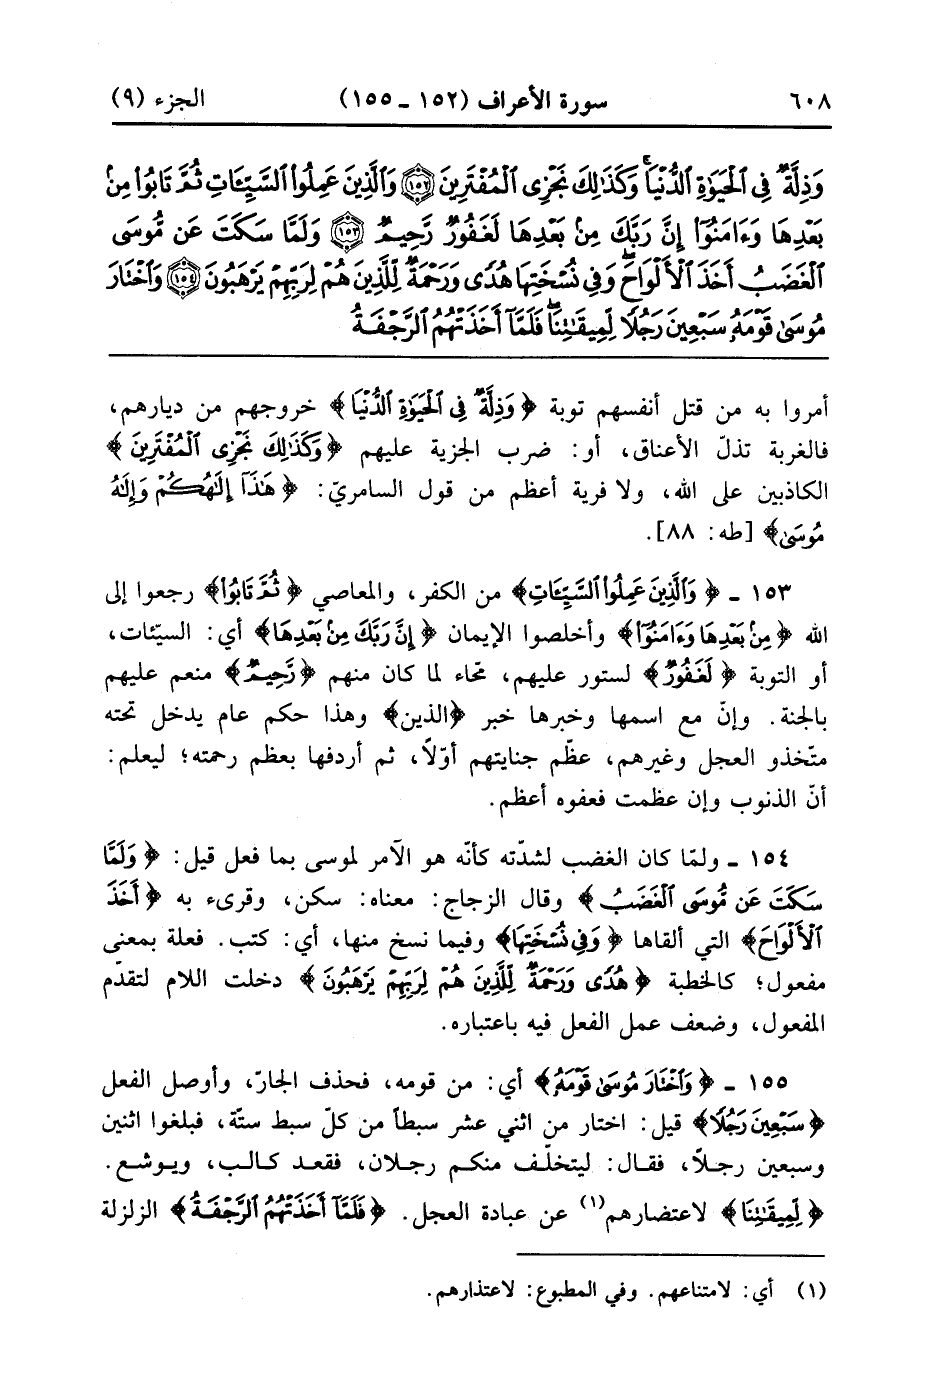 ٦٠٨ سورة الأعراف (١٥٢ ـ ١٥٥) الجزء (٩)
وَذِلَّةٌ فِي ٱلْحَيَوٰةِ ٱلدُّنْيَا ۚ وَكَذَٰلِكَ نَجْزِى ٱلْمُفْتَرِينَ ﴿١٥٢﴾ وَٱلَّذِينَ عَمِلُوا۟ ٱلسَّيِّـَٔاتِ ثُمَّ تَابُوا۟ مِنۢ
بَعْدِهَا وَءَامَنُوٓا۟ إِنَّ رَبَّكَ مِنۢ بَعْدِهَا لَغَفُورٌ رَّحِيمٌ ﴿١٥٣﴾ وَلَمَّا سَكَتَ عَن مُّوسَى
ٱلْغَضَبُ أَخَذَ ٱلْأَلْوَاحَ ۖ وَفِي نُسْخَتِهَا هُدًى وَرَحْمَةٌ لِّلَّذِينَ هُمْ لِرَبِّهِمْ يَرْهَبُونَ ﴿١٥٤﴾ وَٱخْتَارَ
مُوسَىٰ قَوْمَهُۥ سَبْعِينَ رَجُلًا لِّمِيقَٰتِنَا ۖ فَلَمَّآ أَخَذَتْهُمُ ٱلرَّجْفَةُ
أمروا به من قتل أنفسهم توبة ﴿وَذِلَّةٌ فِي ٱلْحَيَوٰةِ ٱلدُّنْيَا﴾ خروجهم من ديارهم،
فالغربة تذلّ الأعناق، أو: ضرب الجزية عليهم ﴿وَكَذَٰلِكَ نَجْزِى ٱلْمُفْتَرِينَ﴾
الكاذبين على الله، ولا فرية أعظم من قول السامريّ: ﴿هَٰذَآ إِلَٰهُكُمْ وَإِلَٰهُ
مُوسَىٰ﴾ [طه: ٨٨].
١٥٣ ـ ﴿وَٱلَّذِينَ عَمِلُوا۟ ٱلسَّيِّـَٔاتِ﴾ من الكفر، والمعاصي ﴿ثُمَّ تَابُوا۟﴾ رجعوا إلى
الله ﴿مِنۢ بَعْدِهَا وَءَامَنُوٓا۟﴾ وأخلصوا الإيمان ﴿إِنَّ رَبَّكَ مِنۢ بَعْدِهَا﴾ أي: السيّئات،
أو التوبة ﴿لَغَفُورٌ﴾ لستور عليهم، محّاء لما كان منهم ﴿رَّحِيمٌ﴾ منعم عليهم
بالجنة. وإنّ مع اسمها وخبرها خبر ﴿الذين﴾ وهذا حكم عام يدخل تحته
متّخذو العجل وغيرهم، عظّم جنايتهم أوّلاً، ثم أردفها بعظم رحمته؛ ليعلم:
أنّ الذنوب وإن عظمت فعفوه أعظم.
١٥٤ ـ ولمّا كان الغضب لشدّته كأنّه هو الآمر لموسى بما فعل قيل: ﴿وَلَمَّا
سَكَتَ عَن مُّوسَى ٱلْغَضَبُ﴾ وقال الزجاج: معناه: سكن، وقرىء به ﴿أَخَذَ
ٱلْأَلْوَاحَ﴾ التي ألقاها ﴿وَفِي نُسْخَتِهَا﴾ وفيما نسخ منها، أي: كتب. فعلة بمعنى
مفعول؛ كالخطبة ﴿هُدًى وَرَحْمَةٌ لِّلَّذِينَ هُمْ لِرَبِّهِمْ يَرْهَبُونَ﴾ دخلت اللام لتقدّم
المفعول، وضعف عمل الفعل فيه باعتباره.
١٥٥ ـ ﴿وَٱخْتَارَ مُوسَىٰ قَوْمَهُۥ﴾ أي: من قومه، فحذف الجارّ، وأوصل الفعل
﴿سَبْعِينَ رَجُلًا﴾ قيل: اختار من اثني عشر سبطاً من كلّ سبط ستّة، فبلغوا اثنين
وسبعين رجلاً، فقال: ليتخلّف منكم رجلان، فقعد كالب، ويوشع.
﴿لِّمِيقَٰتِنَا﴾ لاعتصارهم(١) عن عبادة العجل. ﴿فَلَمَّآ أَخَذَتْهُمُ ٱلرَّجْفَةُ﴾ الزلزلة
(١) أي: لامتناعهم. وفي المطبوع: لاعتذارهم.